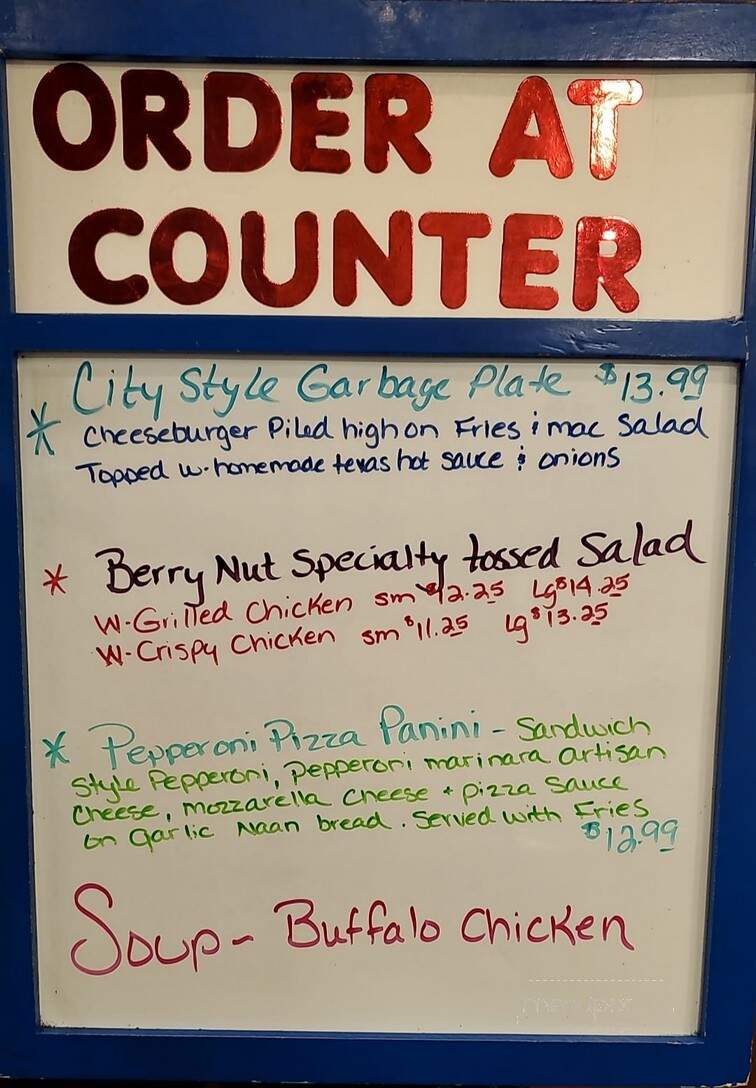 ORDER AT
COUNTER
City Style Garbage Plate $13.99
* Cheeseburger Piled high on Fries & mac Salad
Topped w. homemade texas hot sauce & onions
* Berry Nut Specialty tossed Salad
W. Grilled Chicken sm $12.25 Lg $14.25
W. Crispy Chicken sm $11.25 Lg $13.25
* Pepperoni Pizza Panini - Sandwich
Style Pepperoni, Pepperoni marinara artisan
Cheese, mozzarella cheese + pizza sauce
on garlic Naan bread. Served with Fries
$12.99
Soup - Buffalo Chicken